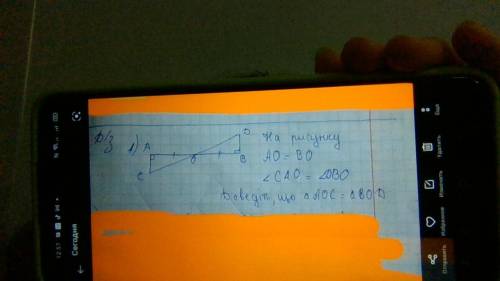 Д/З
1)
A
D
O
B
C
На рисунку
AO = BO
∠CAO = ∠DBO
Доведіть, що △AOC = △BOD
Ещё
Удалить
Изменить
Избранное
Отправить
12:57
Сегодня